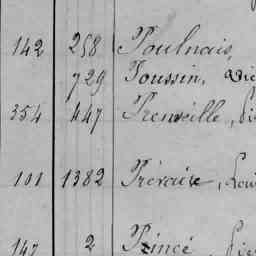 142 258 Poulnais,
729 Poussin, Vic
354 447 Prenveille, Pi
101 1382 Prévaire, Loui
147 2 Princé, Pie